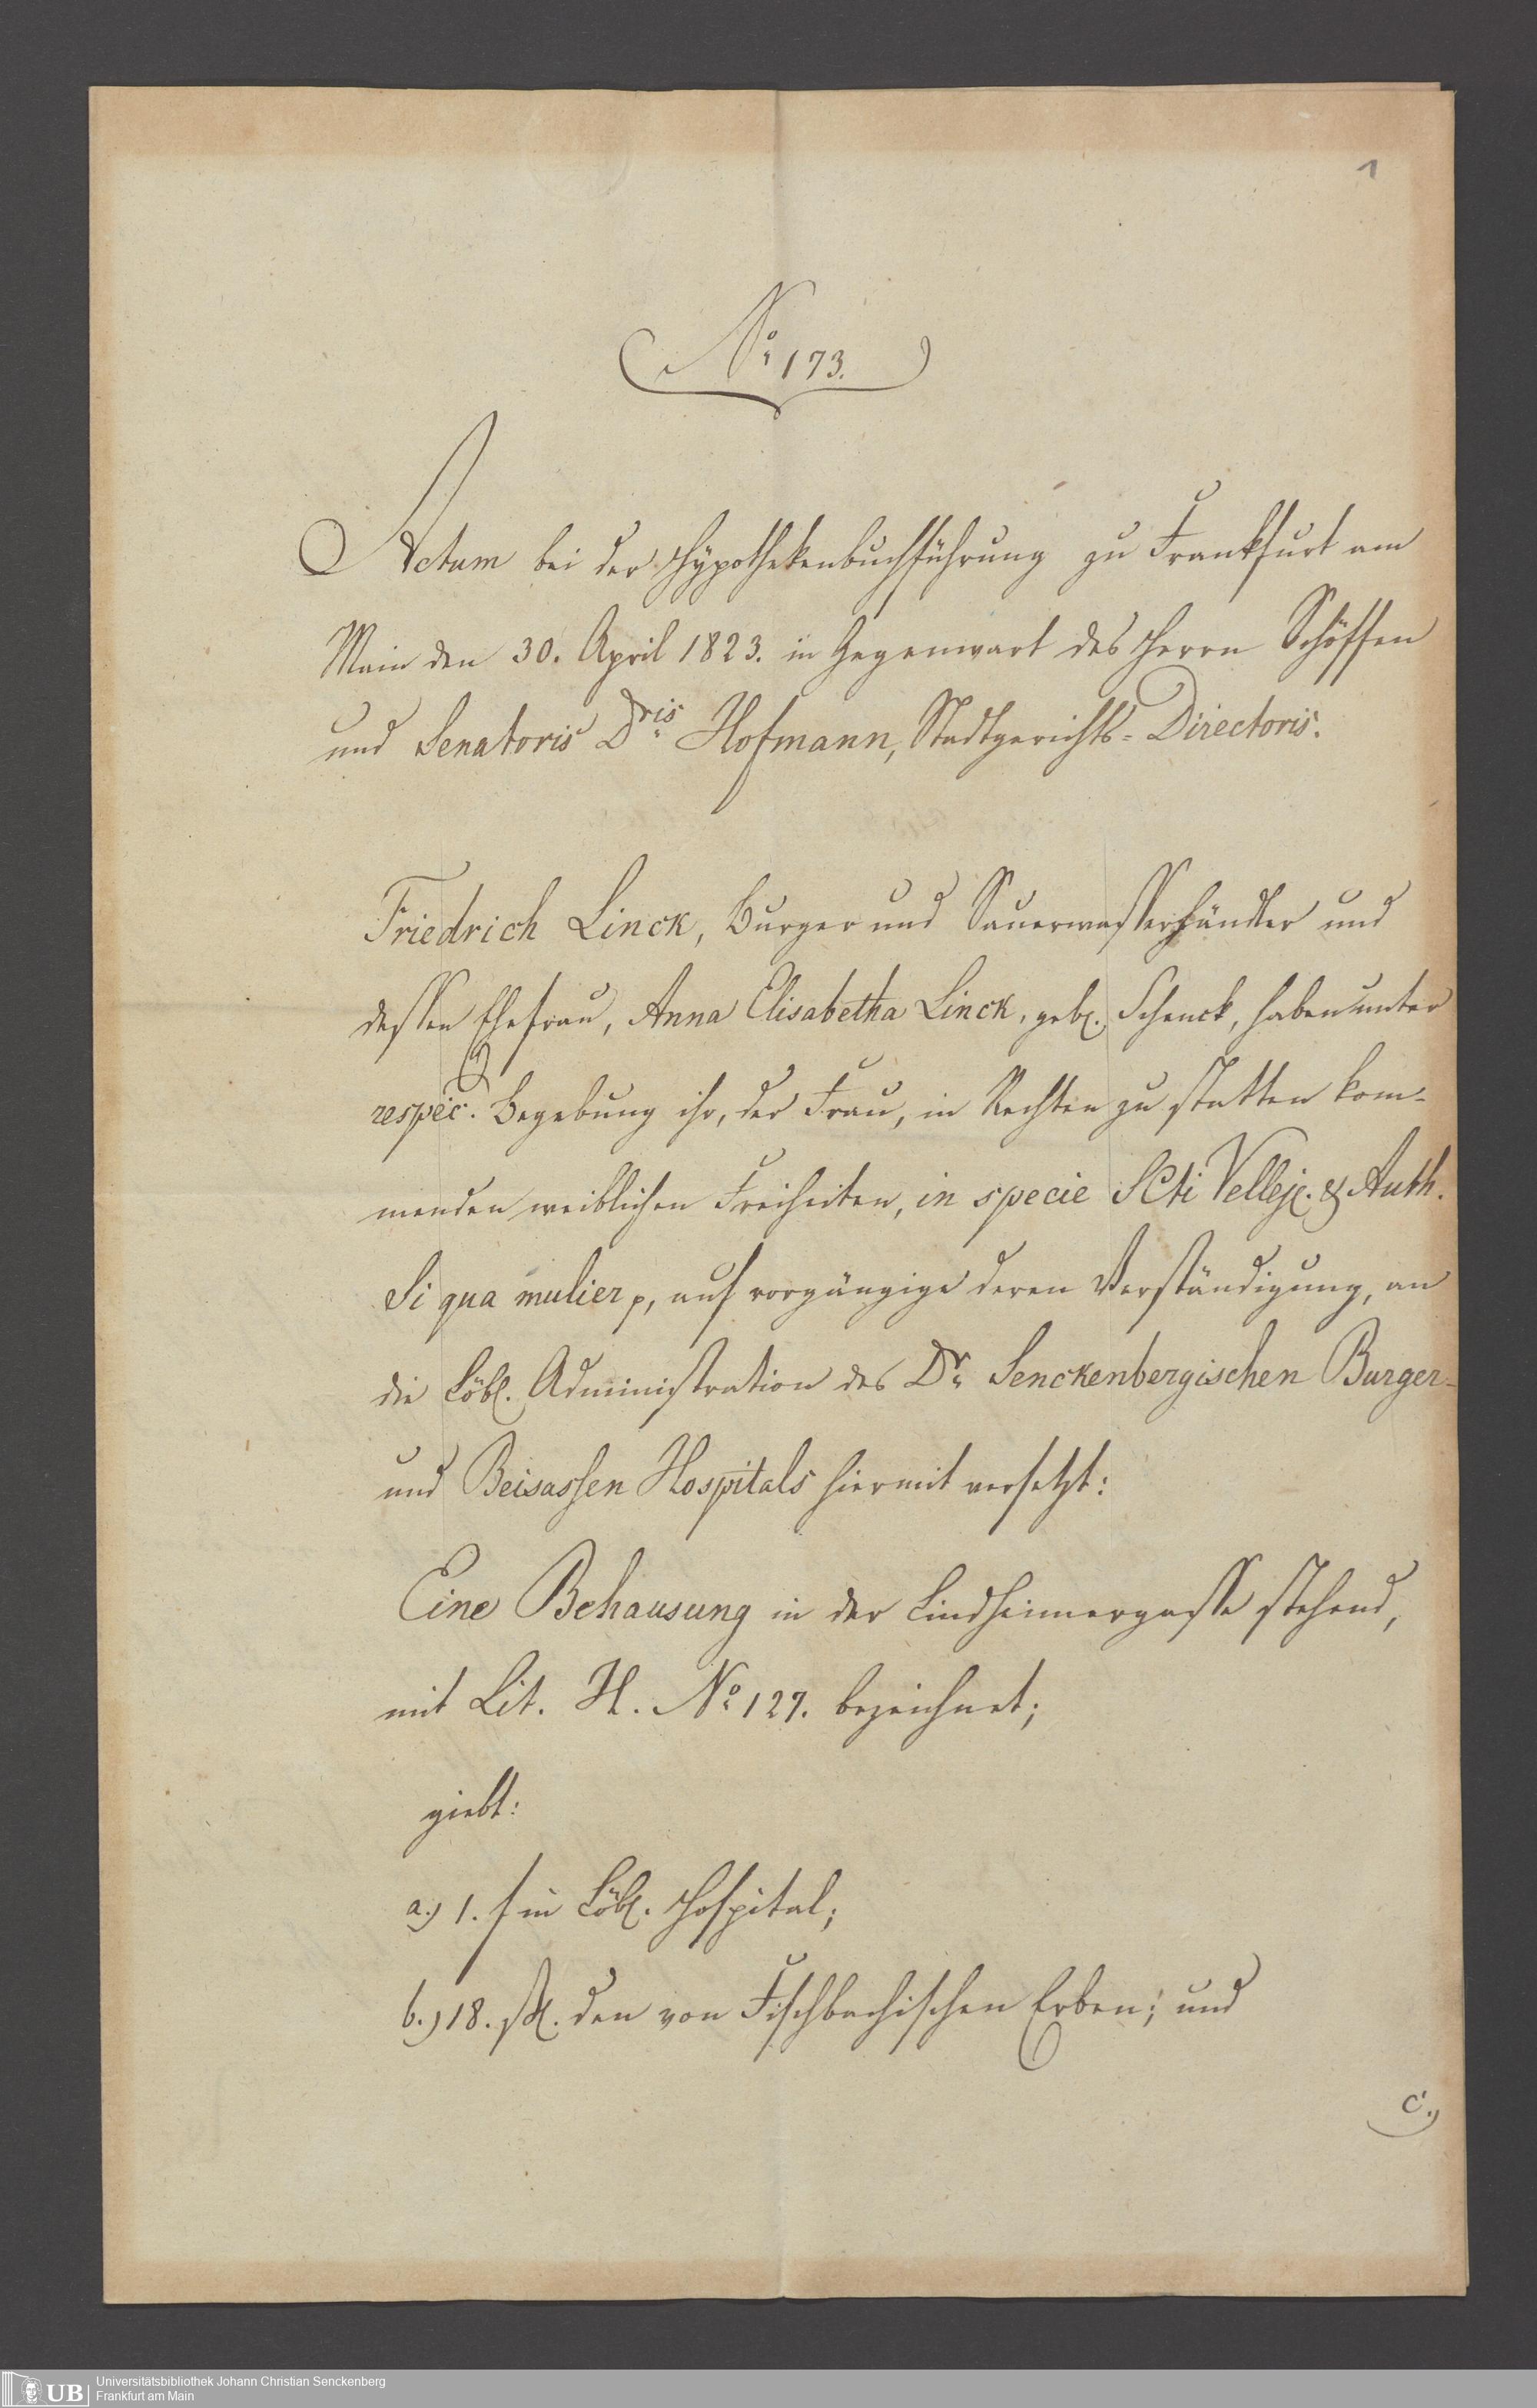 1
No. 173.
Actum bei der Hypothekenbuchführung zu Frankfurt am
Main den 30. April 1823. in Gegenwart des Herrn Schöffen
und Senatoris Dris Hofmann, Stadtgerichts-Directoris.
Friedrich Linck, Burger und Sauerwasserhändler und
dessen Ehefrau, Anna Elisabetha Linck, geb. Schenck, haben unter
respec. Begebung ihr, der Frau, in Rechten zu statten kom-
menden weiblichen Freiheiten, in specie SCti Vellej. & Auth.
Si qua mulier p, auf vorgängige deren Verständigung, an
die Löbl. Administration des Dr. Senckenbergischen Burger-
und Beisassen Hospitals hiermit versetzt:
Eine Behausung in der Lindheimergasse stehend,
mit Lit. H. No 127. bezeichnet;
giebt:
a.) 1. f in Löbl. Hospital;
b.) 18. ßl. den von Fischbachischen Erben; und
c.)
UB Universitätsbibliothek Johann Christian Senckenberg
Frankfurt am Main